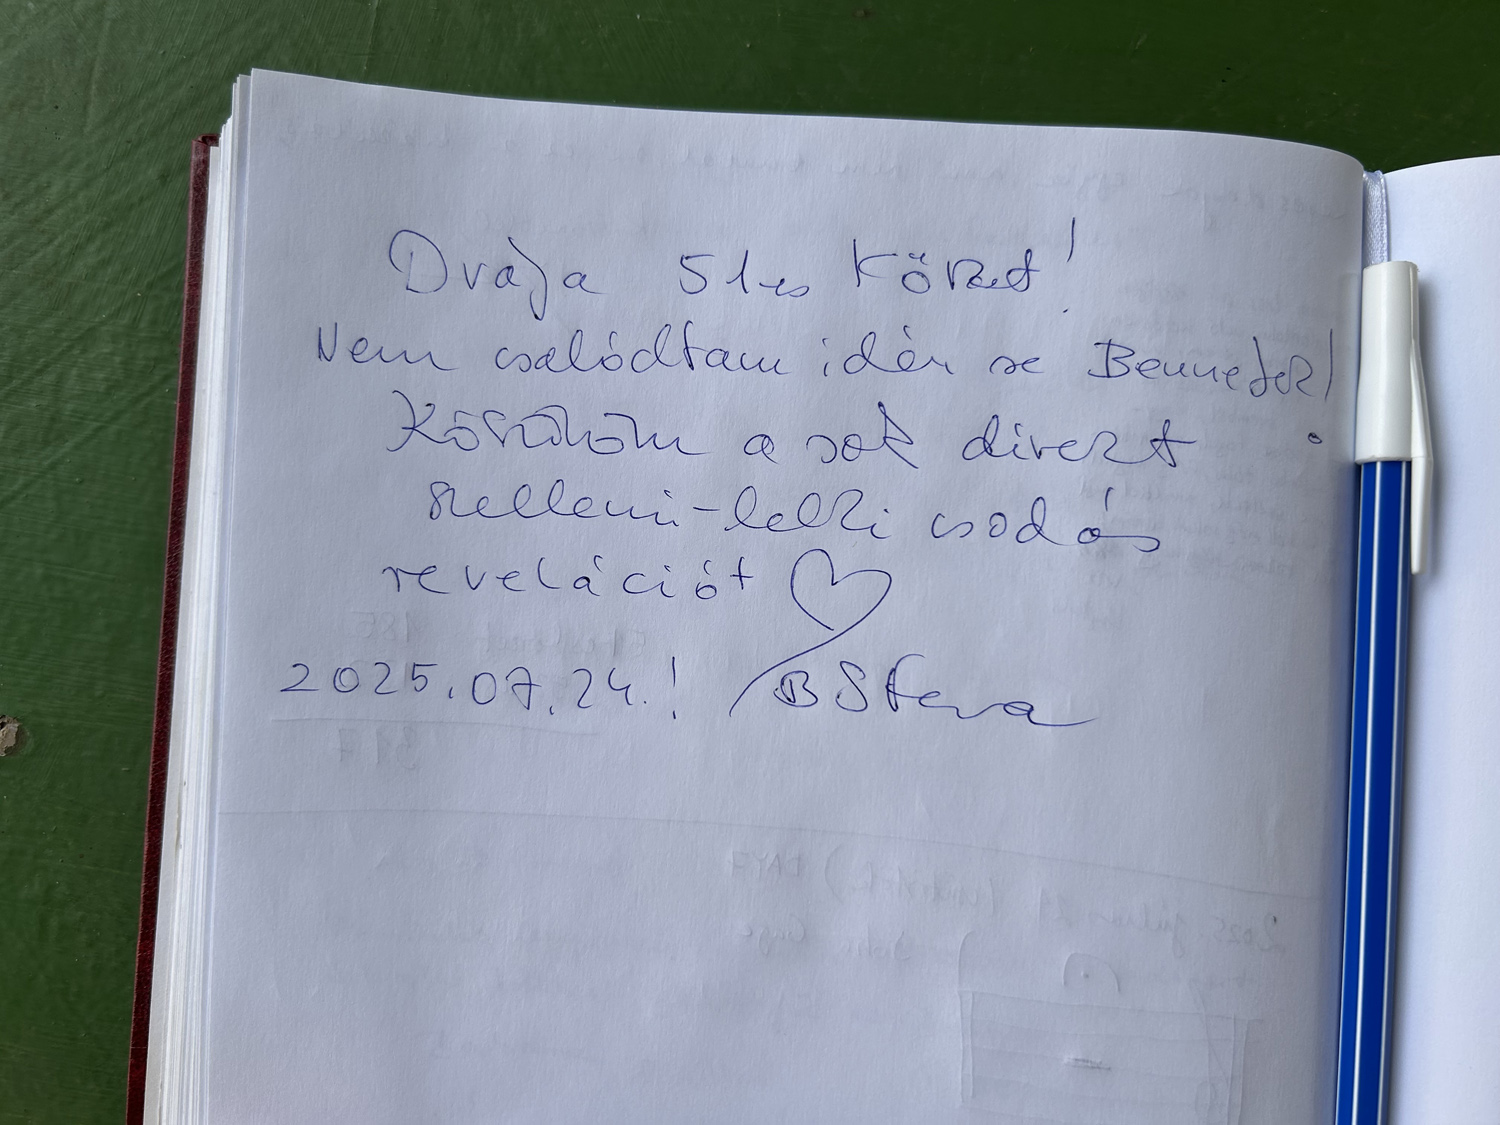 Drága 51-es Körzet!
Nem csalódtam idén se Bennetek!
Köszönöm a sok direkt
szellemi-lelki csodás
revelációt ♡
2025.07.24.! B Steva